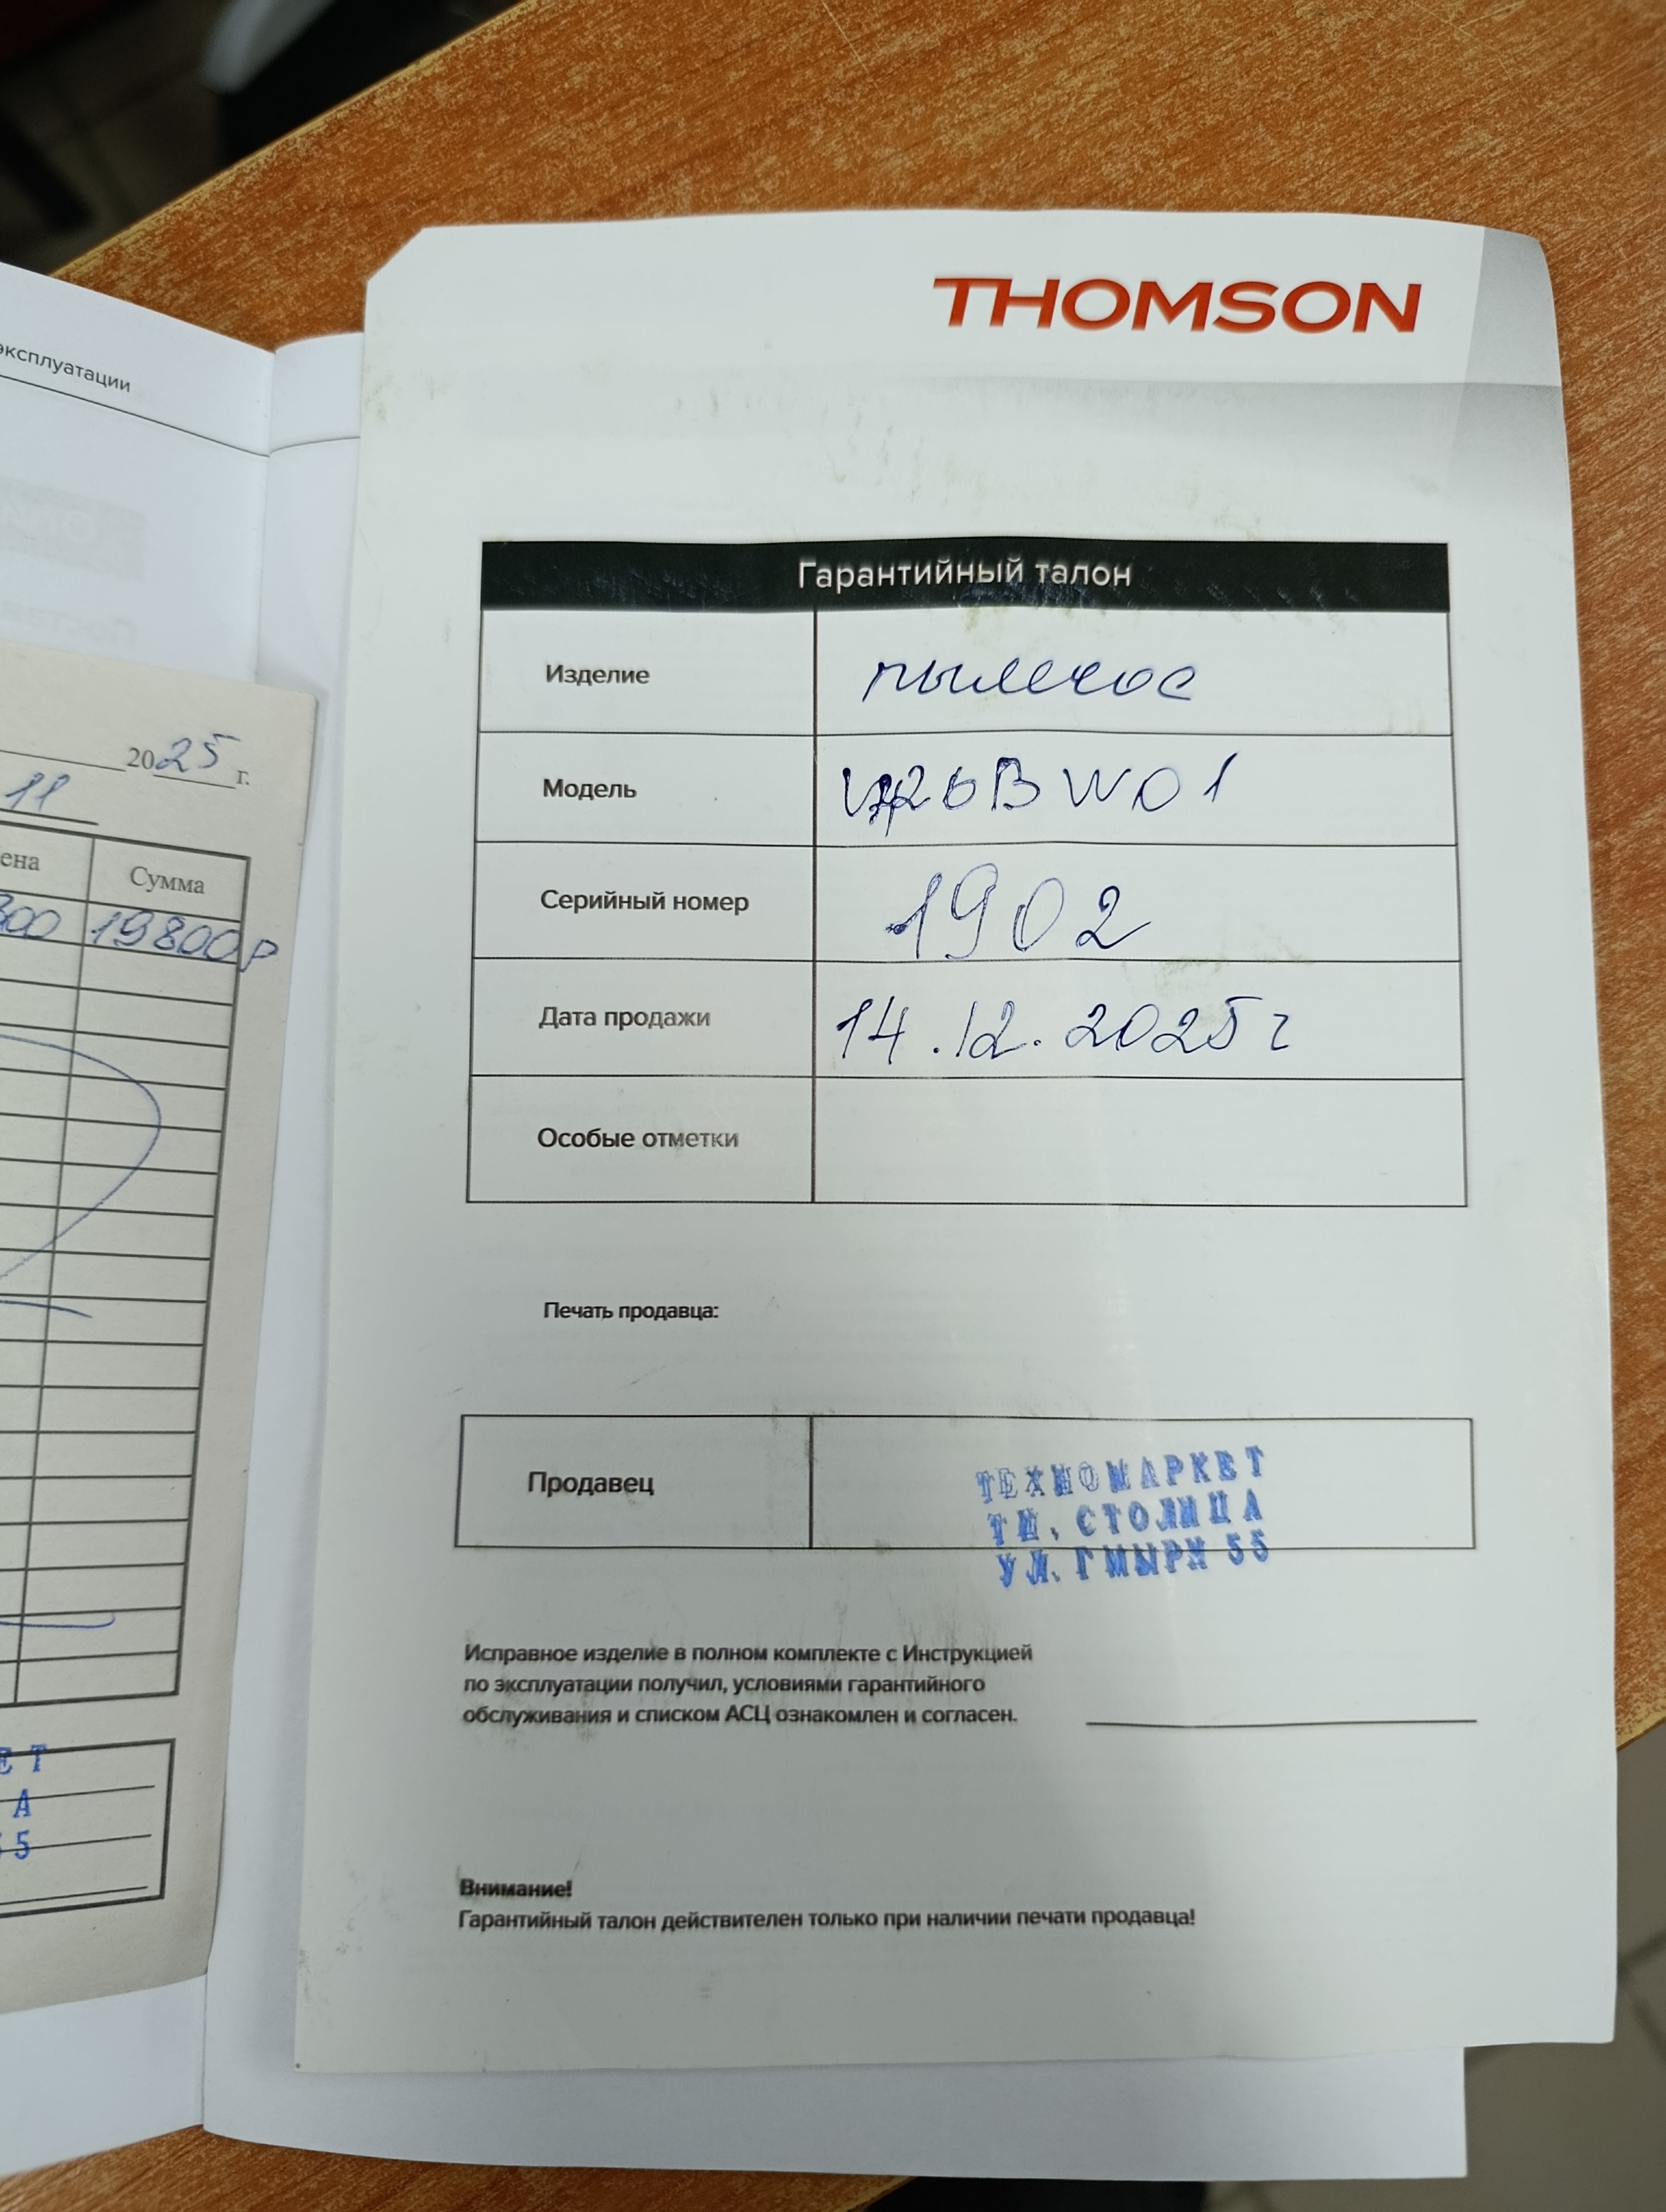 эксплуатации
2025 г.
11
ена Сумма
19800р
ЕТ
А
55
THOMSON
Гарантийный талон
Изделие пылесос
Модель 26BW01
Серийный номер 1902
Дата продажи 14.12.2025г
Особые отметки
Печать продавца:
Продавец
ТЕХНОМАРКЕТ
ТЦ. СТОЛИЦА
УЛ. ГМЫРИ 55
Исправное изделие в полном комплекте с Инструкцией
по эксплуатации получил, условиями гарантийного
обслуживания и списком АСЦ ознакомлен и согласен.
Внимание!
Гарантийный талон действителен только при наличии печати продавца!